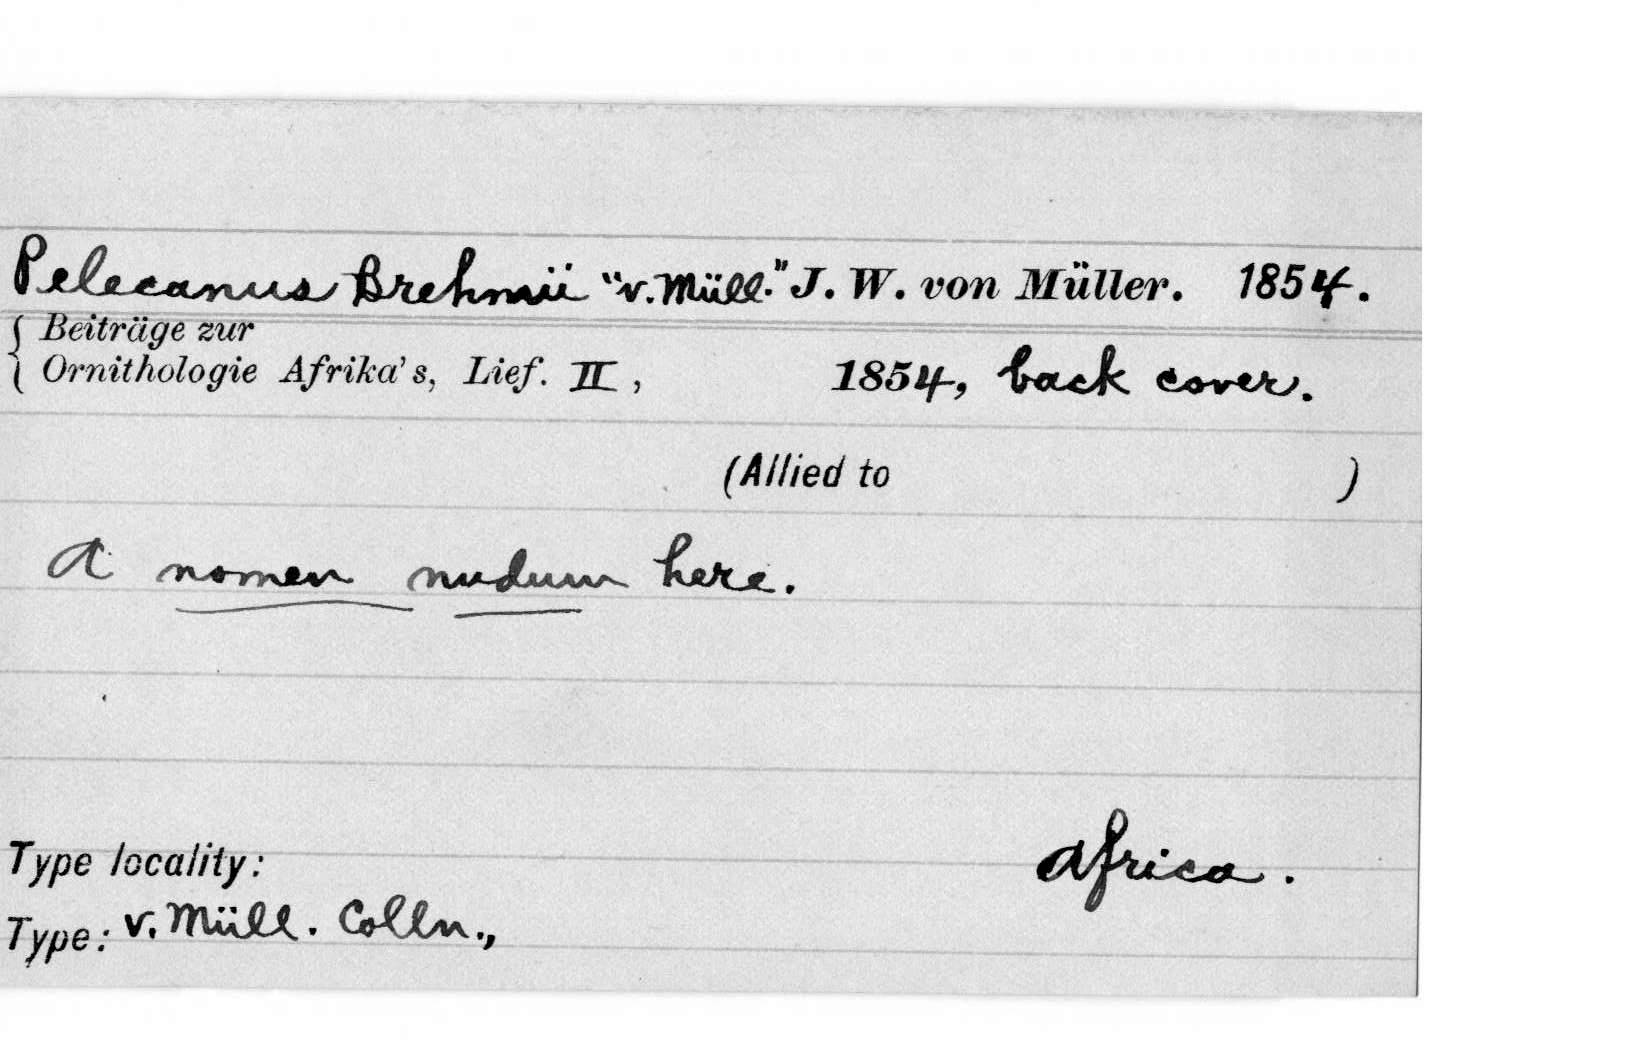 Pelecanus Brehmii "v. Müll." J. W. von Müller. 1854.
Beiträge zur
Ornithologie Afrika's, Lief. II, 1854, back cover.
(Allied to )
A nomen nudum here.
Type locality: Africa.
Type: v. Müll. Colln.,